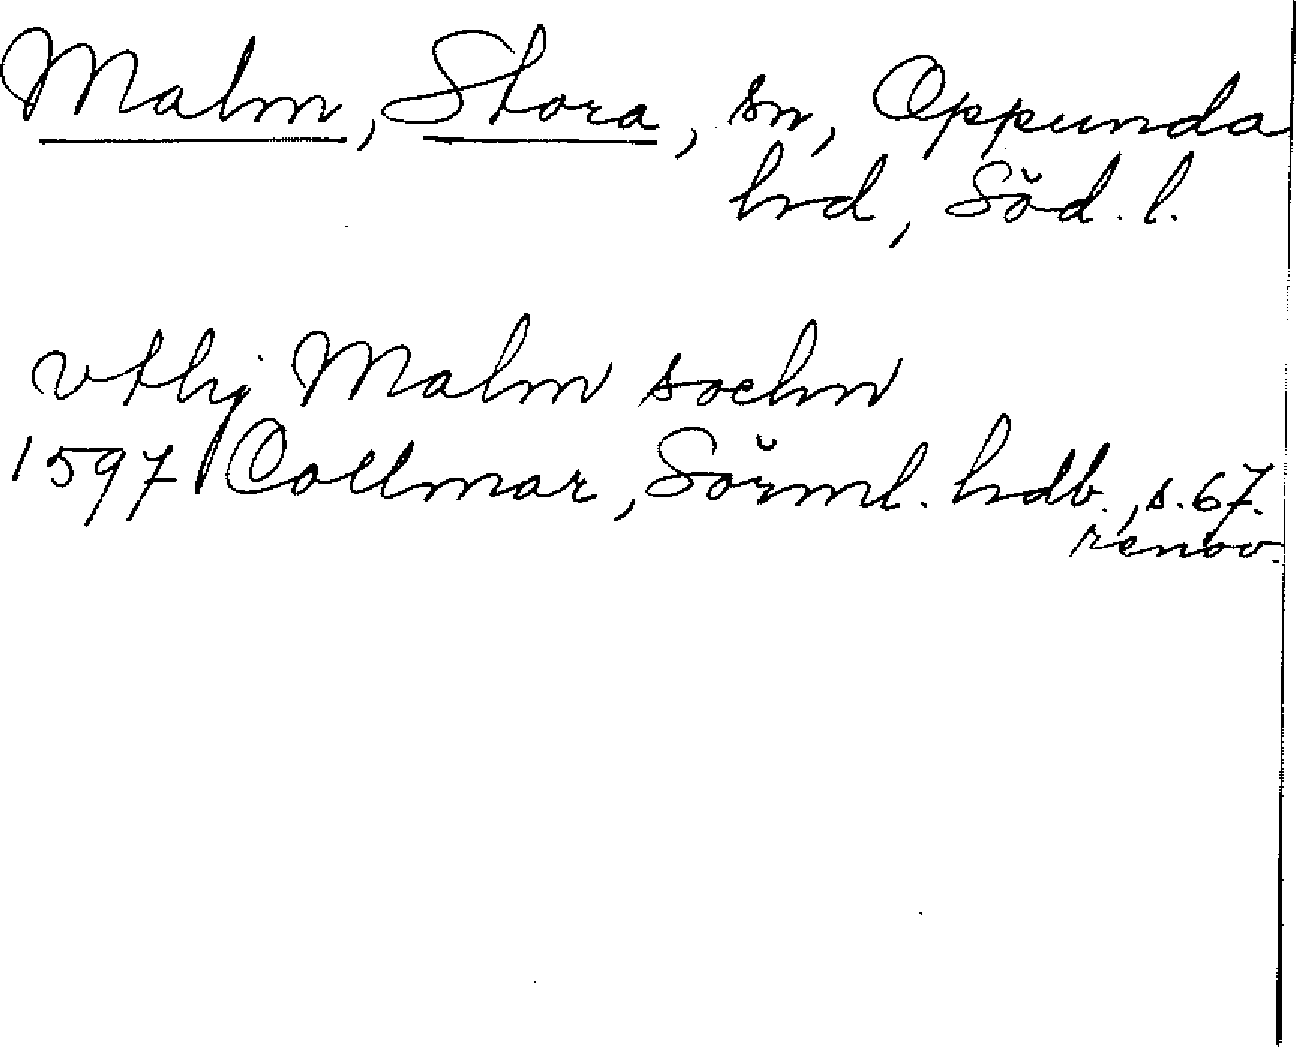 Malm, Stora, sn, Oppunda
hrd, Söd. l.
vthj Malm sochn
1597 Collmar, Sörml. hrdb., s. 67.
renov.